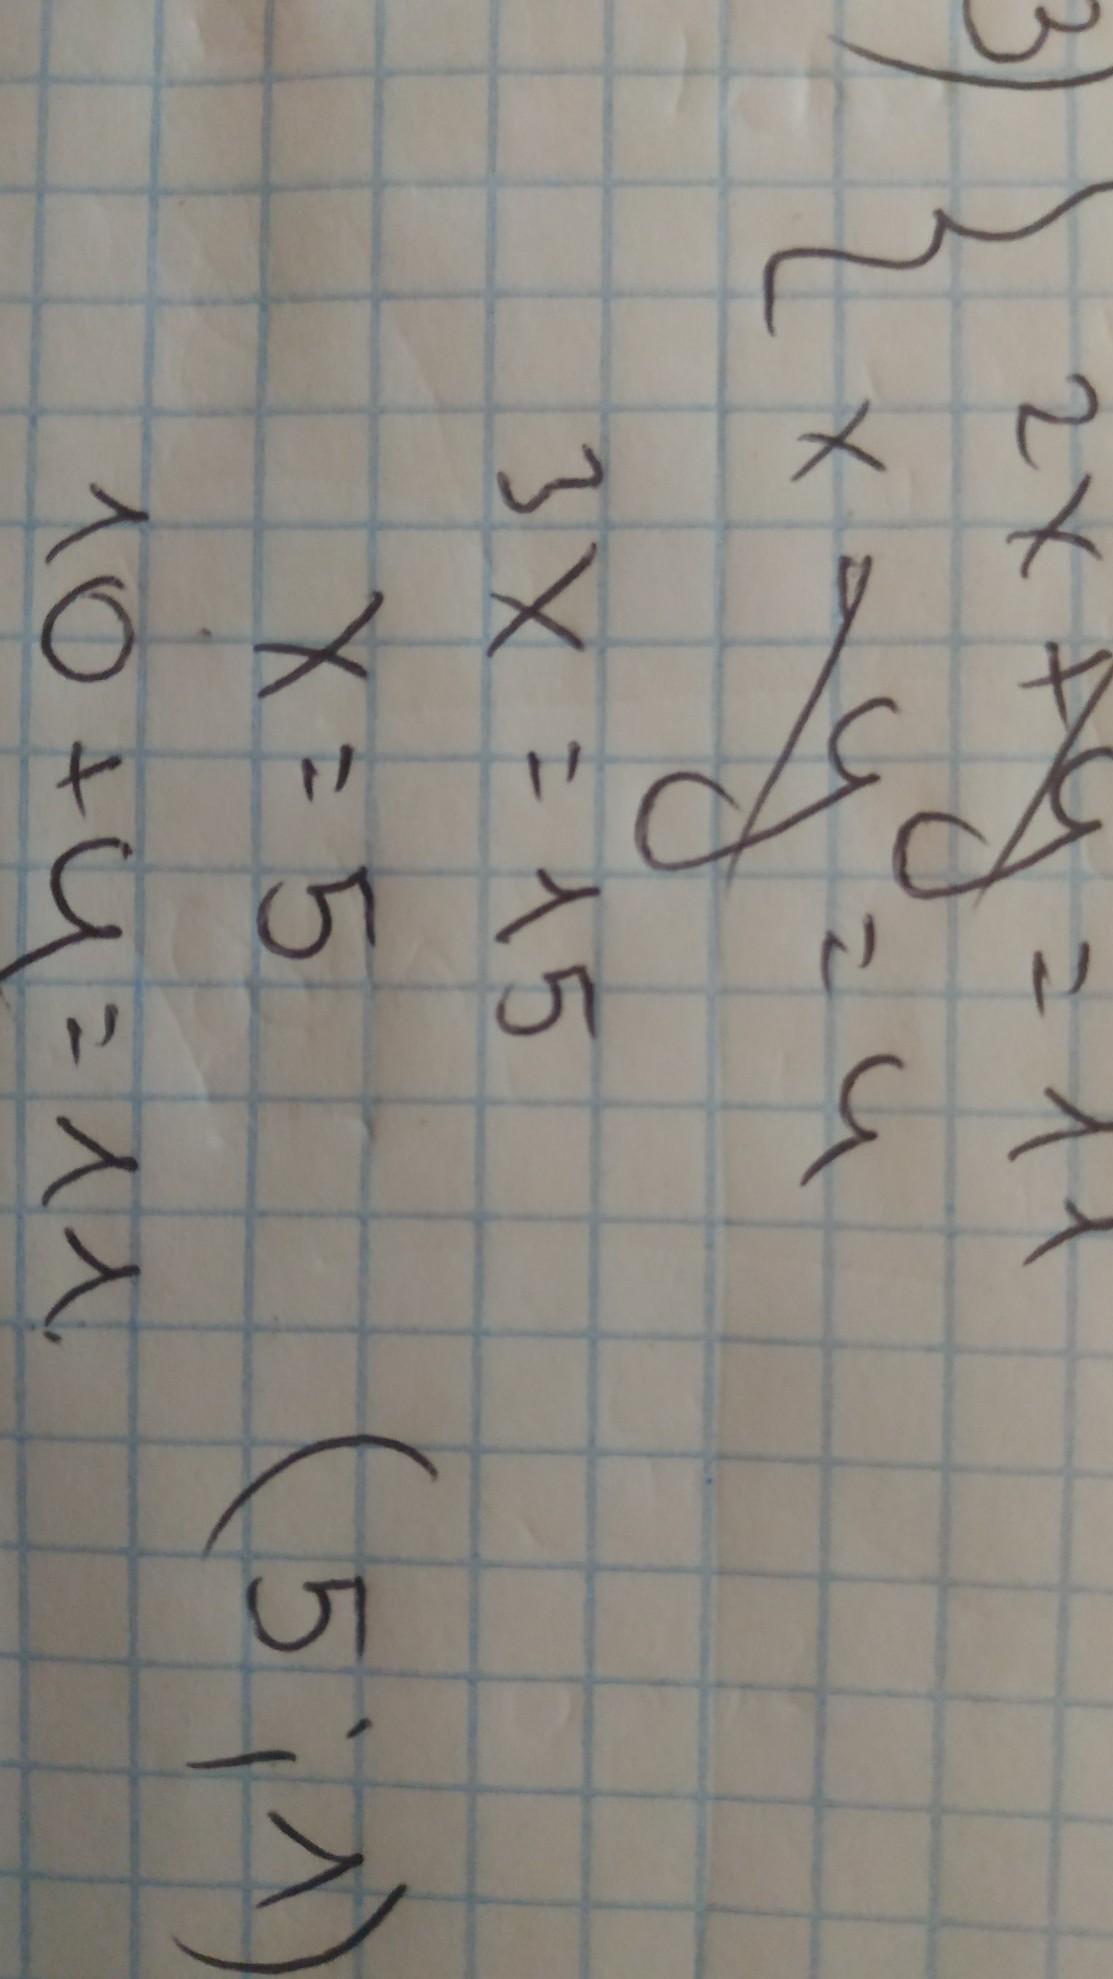 3) { 2x + y = 11
x - y = 4
3x = 15
x = 5 (5; 1)
10 + y = 11